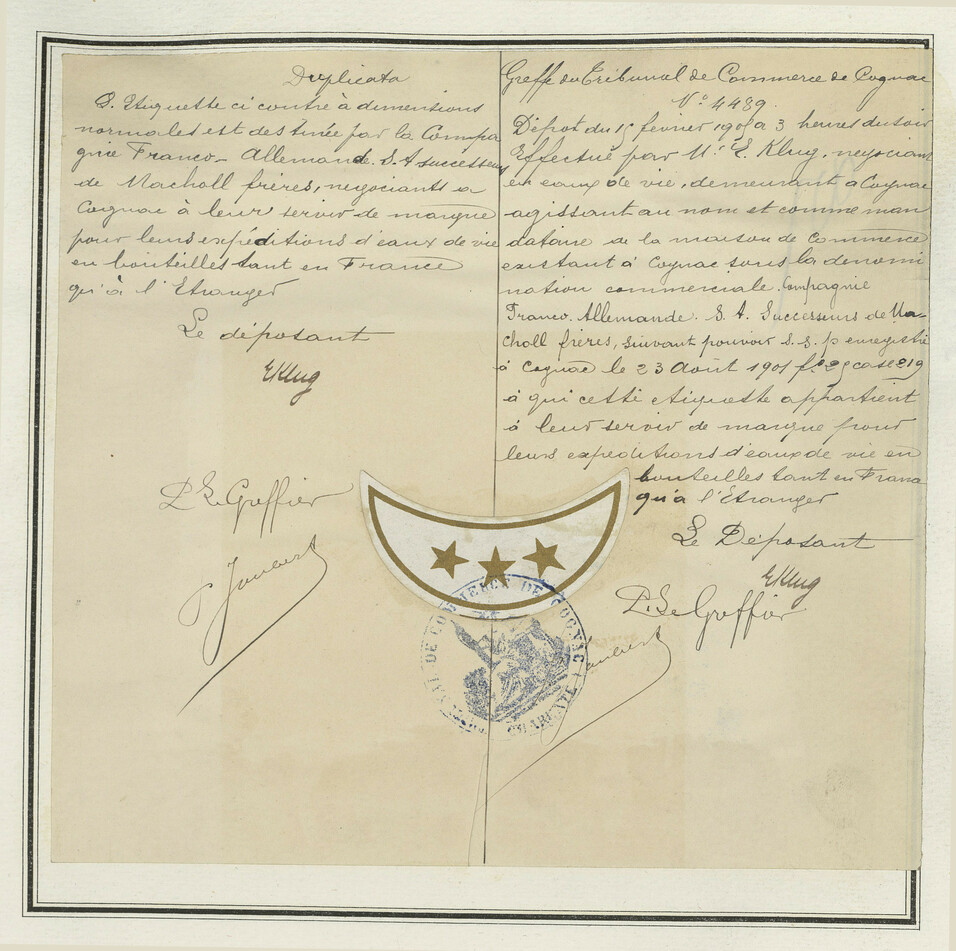 Duplicata
L'Etiquette ci contre à dimentions
normales est destinée par la Compa
gnie Franco-Allemande. S. A successeurs
de Macholl frères, negociants a
Cognac à leur servir de marque
pour leurs expéditions d'eaux de vie
en bouteilles tant en France
qu'à l'Etranger
Le déposant
EKlug
P. Le Greffier
Greffe du Tribunal de Commerce de Cognac
N° 4489.
Dépot du 15 février 1905 a 3 heures du soir
Effectué par Mr. E. Klug, negociant
en eaux de vie, demeurant a Cognac
agissant au nom et comme man
dataire de la maison de Commerce
existant à Cognac sous la denomi
nation commerciale. Compagnie
Franco. Allemande. S. A. Successeurs de Ma-
choll frères, suivant pouvoir s. s. p enregistré
à Cognac le 23 Août 1901 case 219
à qui cette etiquette appartient
à leur servir de marque pour
leurs expeditions d'eaux de vie en
bouteilles tant en France
qu'a l'Etranger
Le Déposant
EKlug
P. Le Greffier
DE COMMERCE DE COGNAC
CHARENTE